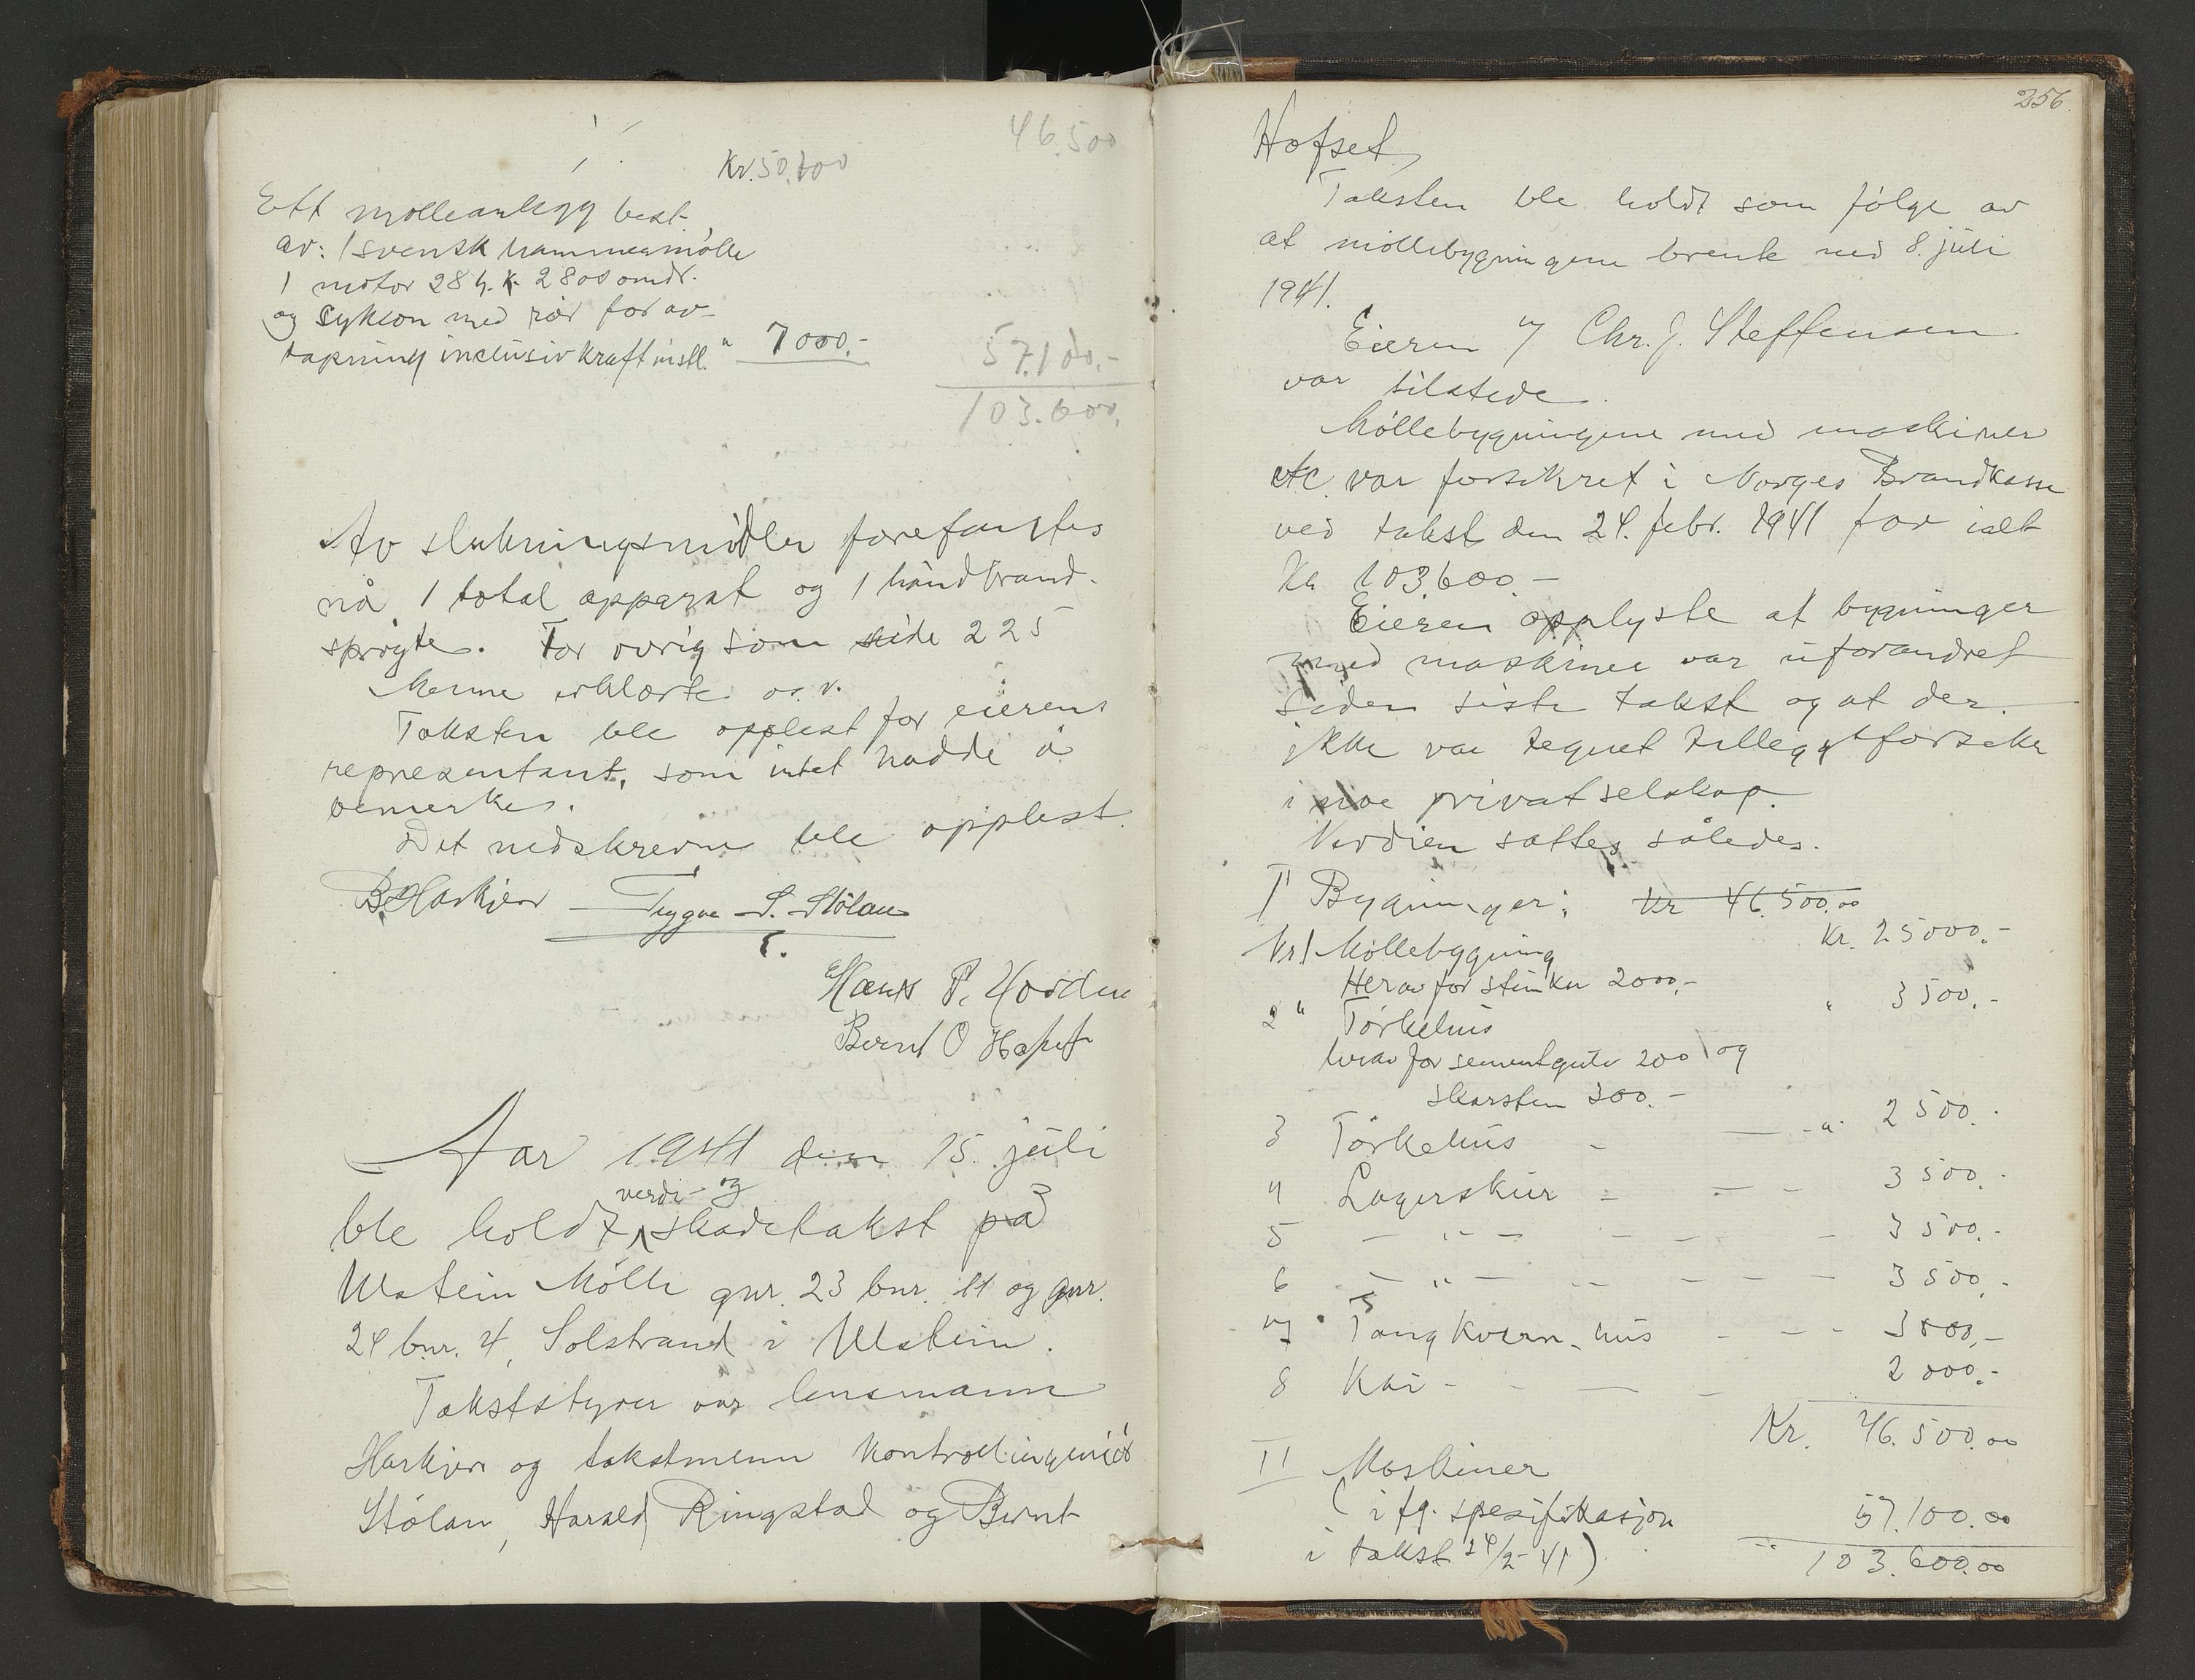 46.500
Kr. 50.100
Ett mølleanlegg best.
av: 1 svensk hammermølle
1 motor 28 h.k. 2800 omdr.
og syklon med rør for av-
tapning inclusiv kraftinstl. " 7000.-
57.100.-
103.600.
Av slukningsmidler forefantes
nå 1 total apparat og 1 håndbrand-
sprøyte. For øvrig som side 225
Menne erklærte o.s.v.
Taksten ble opplest for eierens
representant, som intet hadde å
bemerke.
Det nedskrevne ble opplest.
B. Harkjær Trygve S. Stölan
Hans P. Hovden
Bernt O Hofset
Aar 1941 den 15. juli
verdi- og
ble holdt skadetakst på
Ulstein Mølle gnr. 23 bnr. 11 og gnr.
24 bnr. 4, Solstrand i Ulstein.
Takststyrer var lensmann
Harkjær og takstmenn kontrollingeniör
Stölan, Harald Ringstad og Bernt
256.
Hofset
Taksten ble holdt som følge av
at møllebygningene brente ned 8. juli
1941.
Eieren Chr. J. Steffensen
var tilstede.
Møllebygningene med maskiner
etc. var forsikret i Norges Brandkasse
ved takst den 24. febr. 1941 for ialt
Kr 103.600.-
Eieren opplyste at bygninger
med maskiner var uforandret
siden siste takst og at der
ikke var tegnet tilleggsforsikr
i noe privat selskap.
Verdien sattes således.
I Bygninger: Kr 46.500.00
Nr 1 Møllebygning Kr. 25000.-
Herav for stenkr 2000.-
2 " Tørkehus " 3500.-
herav for sementgulv 200 og
skorsten 300.-
3 Tørkehus - — - " - 2500.-
4 Lagerskur - - - 3500.-
5 - " - - - - 3500.-
6 - " - - - - 3500.-
7 Tangkvern-hus - - - 3000.-
8 Kai - - - - 2000.-
Kr. 46.500.00
II Maskiner
(i flg. spesifikasjon 57.100.00
i takst 24/2-41)
103.600.00